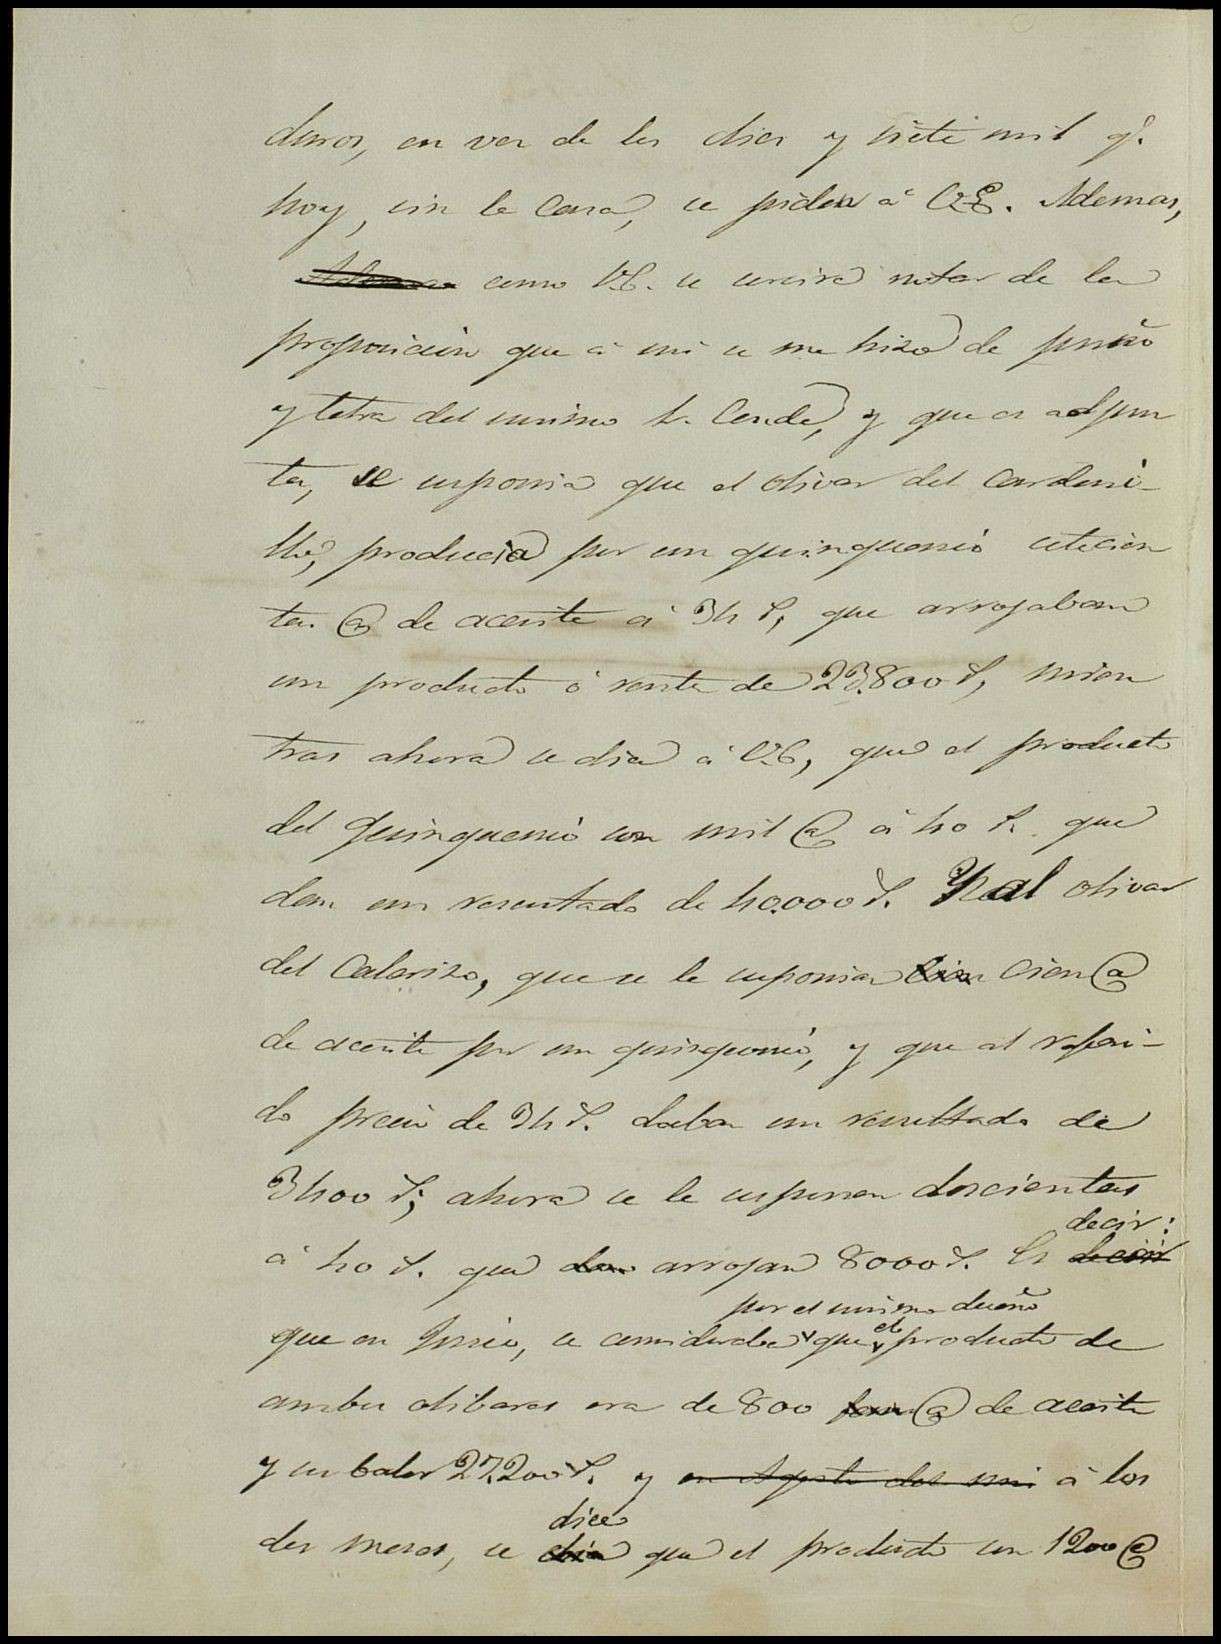 duros, en vez de los diez y siete mil q.e
hoy, sin la Casa, se piden á V.E. Ademas,
Ademas como V.E. se servirá notar de la
proposicion que á mi se me hizo de puño
y letra del mismo Sr. Conde, y que es adjun
ta, se suponia que el olivar del Cardeni-
llo, producia por un quinquenio setecien
tas @ de aceite á 34 r., que arrojaban
un producto ó renta de 23.800 r, mien
tras ahora se dice á V.E, que el producto
del quinquenio son mil @ á 40 r. que
dan un resultado de 40.000 r. Y al olivar
del Calerizo, que se le suponian cien cien @
de aceite por un quinquenio, y que al referi-
do precio de 34 r. daban un resultado de
3400 r; ahora se le suponen doscientas
decir:
á 40 r. que dan arrojan 8000 r. Es decir
por el mismo dueño
que en Junio, se consideraba que el producto de
ambos olibares era de 800 @ de aceite
y su balor 27.200 r. y en Agosto del mi á los
dice
dos meses, se dice que el producto son 1200 @